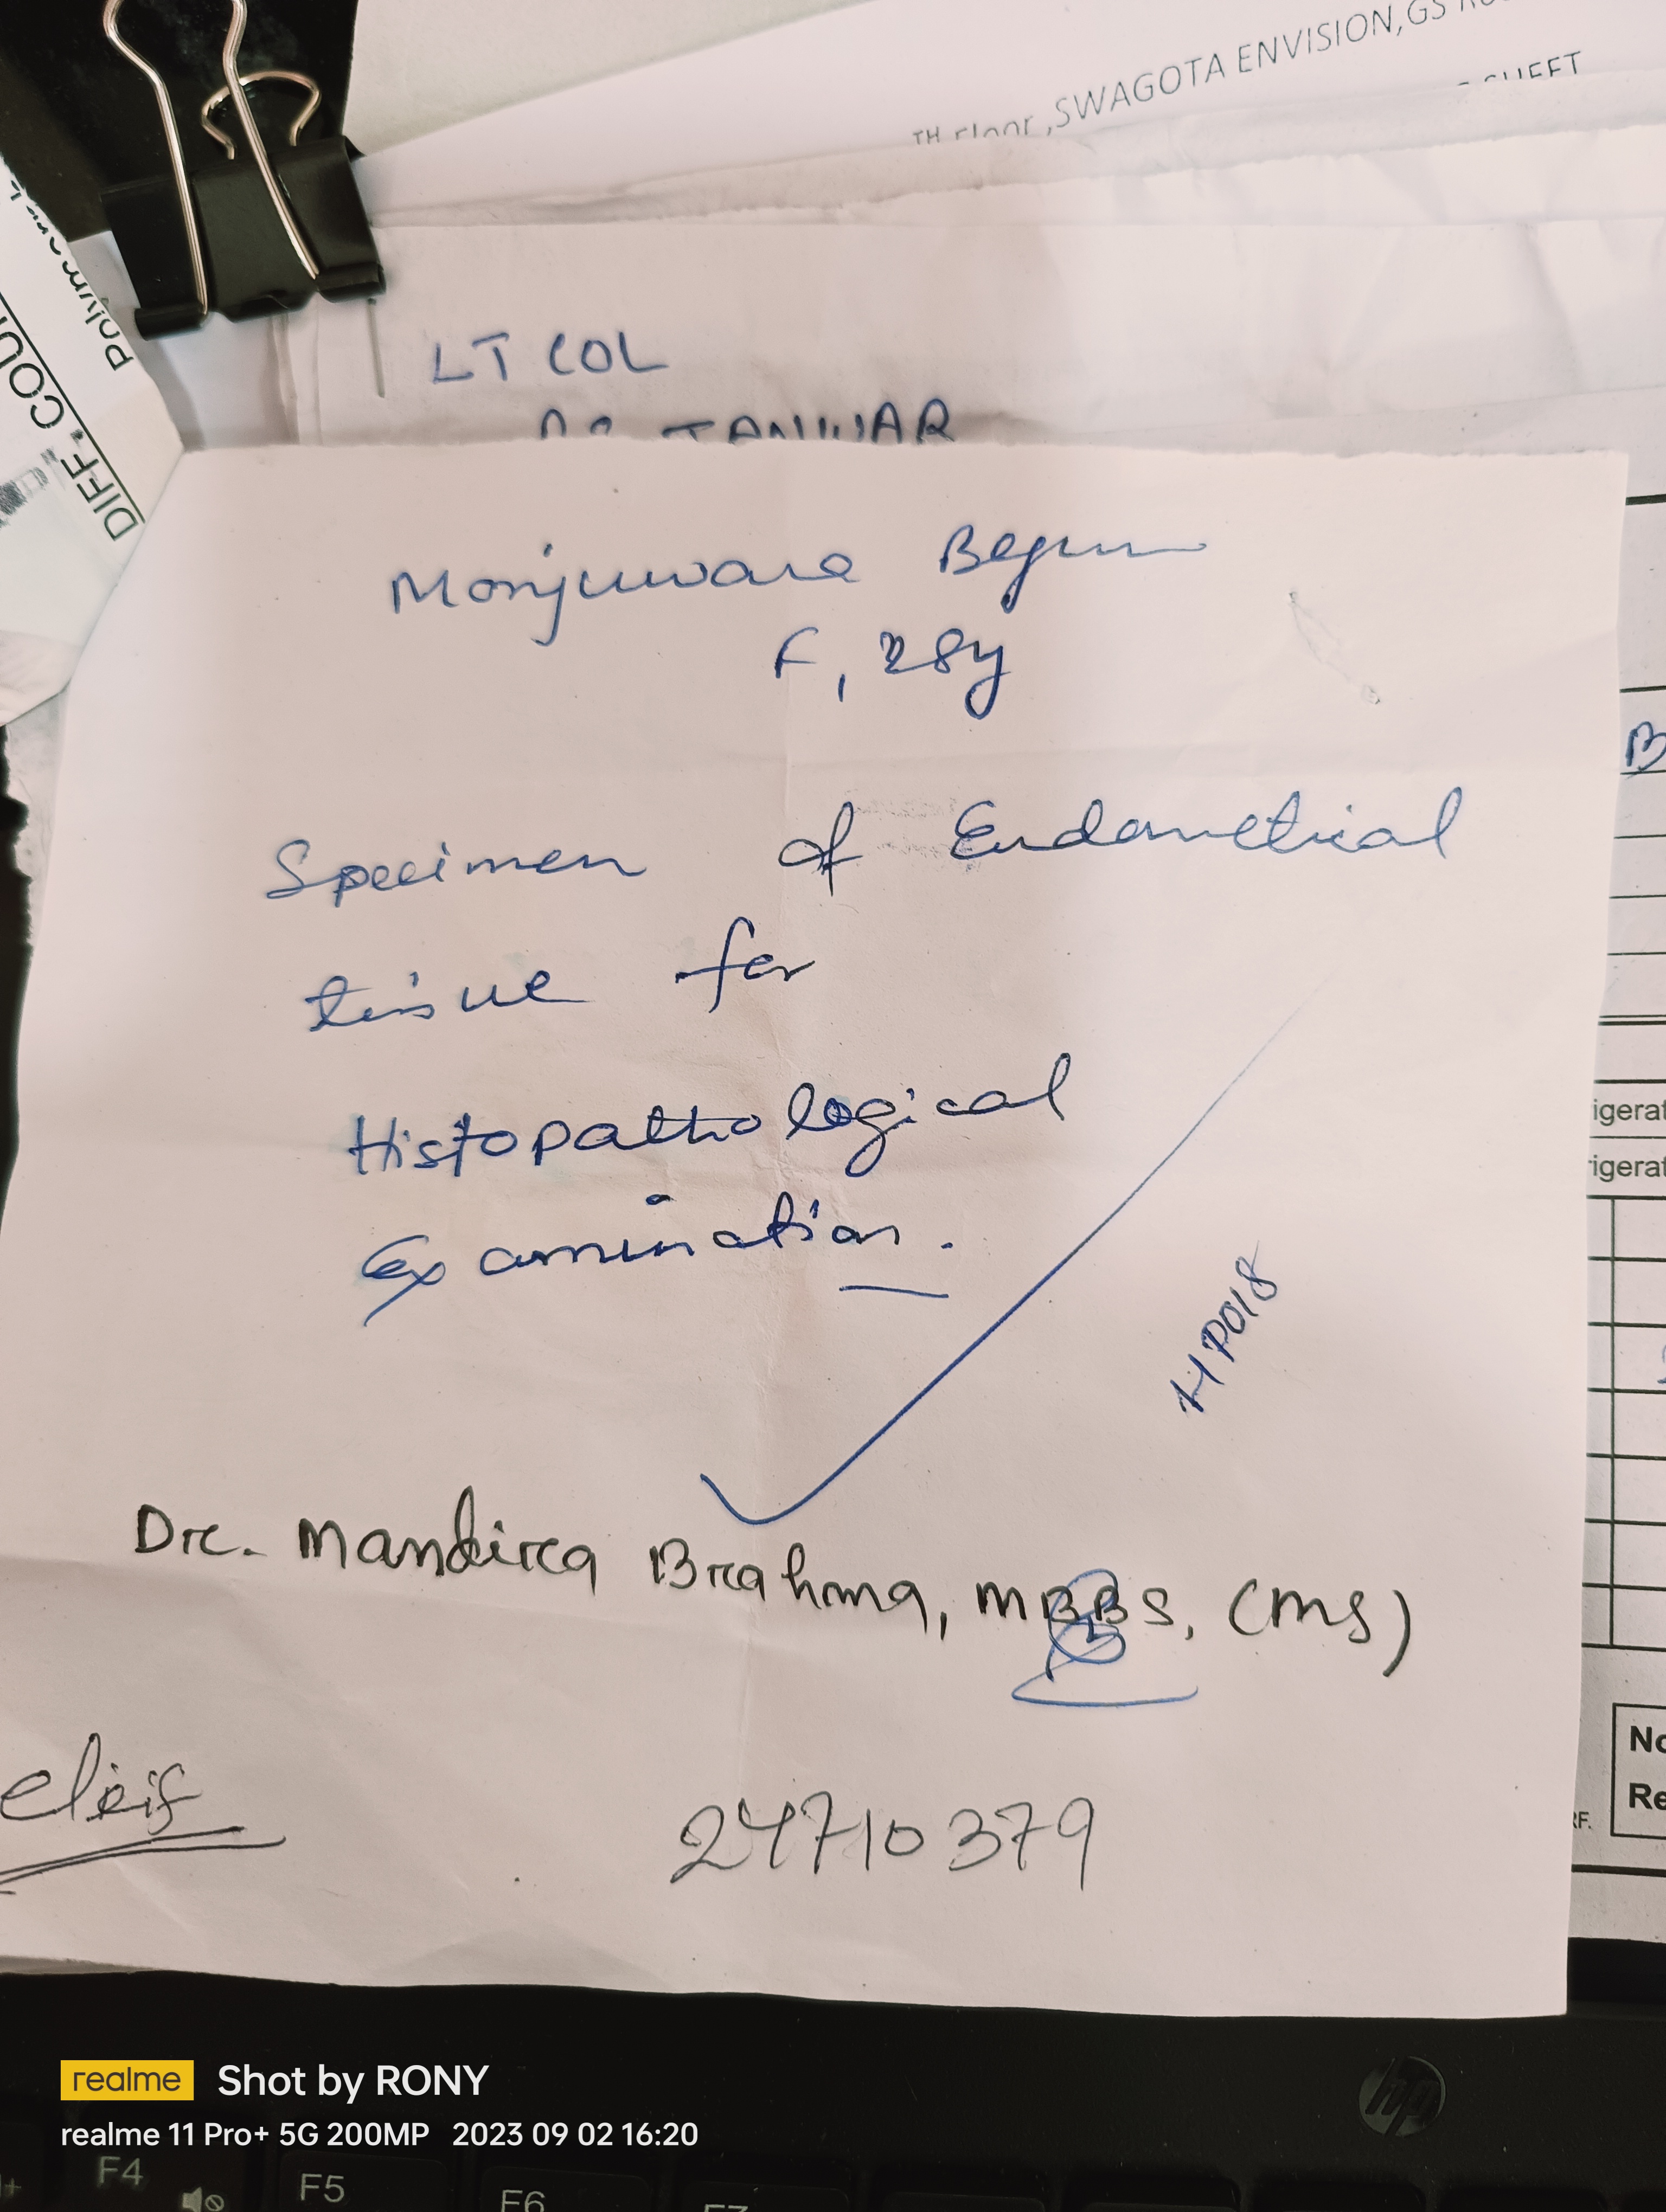 SWAGOTA ENVISION, GS
LT COL
TANWAR
DIFF. COU
Monjuwara Begum
F, 28y
Specimen of Endometrial
tissue for
Histopathological
Examination.
HP018
Dr. Mandira Brahma, MBBS, (MS)
24710379
B
igerat
rigerat
No
Re
RF.
hp
realme Shot by RONY
realme 11 Pro+ 5G 200MP 2023 09 02 16:20
F4
F5
F6